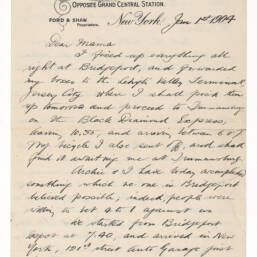 OPPOSITE GRAND CENTRAL STATION.
FORD & SHAW
Proprietors.
New York, Jan 1st 1904
Dear Mama
I fixed up everything all
right at Bridgeport, and forwarded
my boxes to the Lehigh Valley Terminal,
Jersey City where I shall pick them
up tomorrow and proceed to
on the Black Diamond Express,
leaving and arrive between 6 & 7
My bicycle I also sent and shall
find it waiting me at
Archie & I have today accomplished
something which no one in Bridgeport
believed possible, indeed, people were
willing to bet 4 to 1 against us
We started from Bridgeport
depot at 7.40, and arrived in New
York, 121st street Auto Garage just